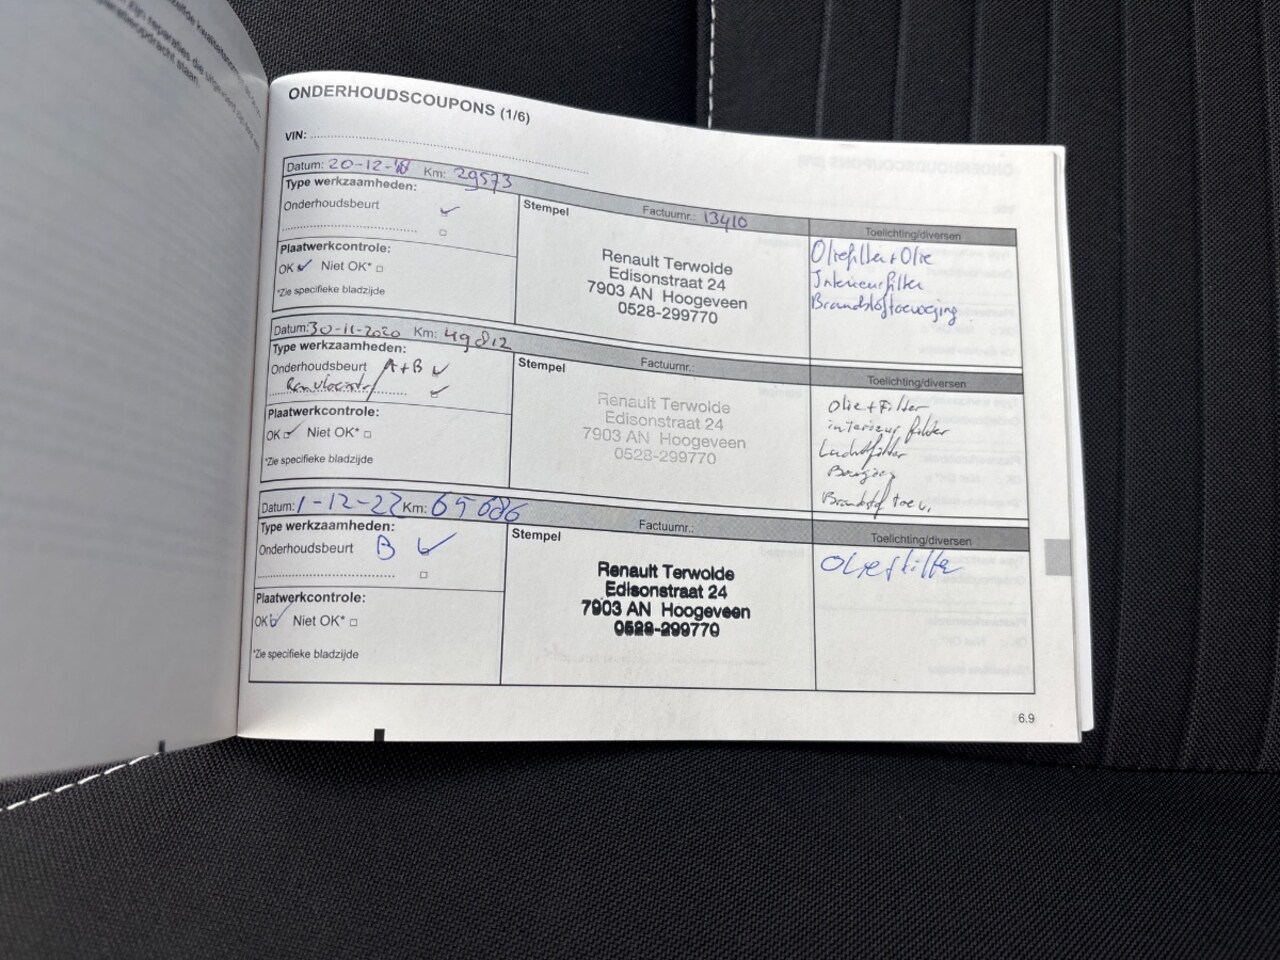 ONDERHOUDSCOUPONS (1/6)
VIN:
Datum: 20-12-18 Km: 29573
Type werkzaamheden:
Onderhoudsbeurt
Plaatwerkcontrole:
OK Niet OK*
*Zie specifieke bladzijde
Stempel
Factuurnr.: 13410
Renault Terwolde
Edisonstraat 24
7903 AN Hoogeveen
0528-299770
Toelichting/diversen
Oliefilter + Olie
Interieurfilter
Brandstoftoevoeging
Datum: 30-11-2020 Km: 49812
Type werkzaamheden:
Onderhoudsbeurt A+B
Remvloeistof
Plaatwerkcontrole:
OK Niet OK*
*Zie specifieke bladzijde
Stempel
Factuurnr.:
Renault Terwolde
Edisonstraat 24
7903 AN Hoogeveen
0528-299770
Toelichting/diversen
Olie + Filter
interieur filter
Luchtfilter
Brandstof toev.
Datum: 1-12-22 Km: 65686
Type werkzaamheden:
Onderhoudsbeurt B
Plaatwerkcontrole:
OK Niet OK*
*Zie specifieke bladzijde
Stempel
Factuurnr.:
Renault Terwolde
Edisonstraat 24
7903 AN Hoogeveen
0528-299770
Toelichting/diversen
Olie + filter
6.9